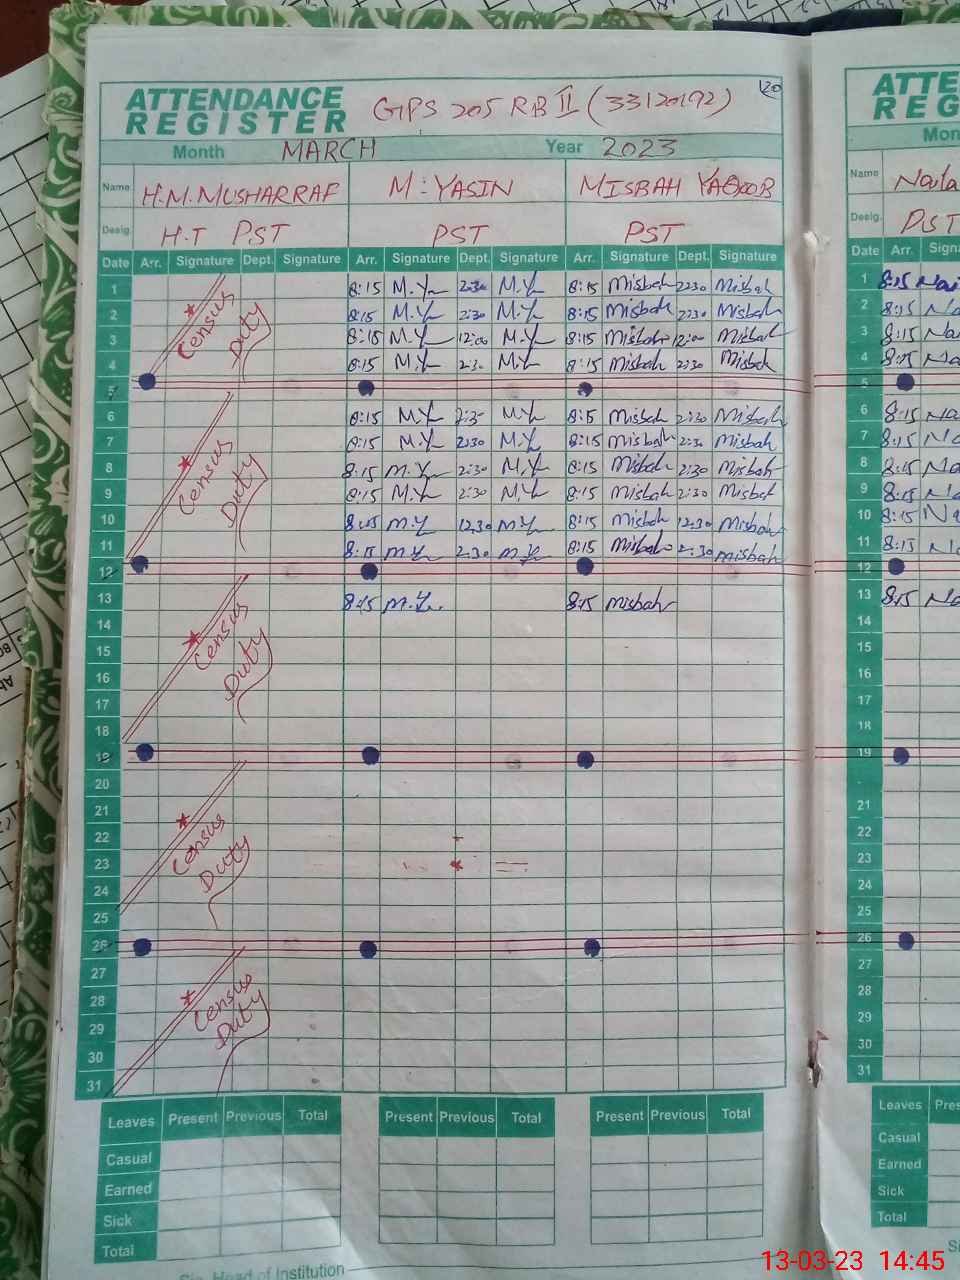 ATTENDANCE REGISTER GPS 205 RB II (33120192) 20
Month MARCH Year 2023
Name H.M.MUSHARRAF M. YASIN MISBAH YAQOOB
Desig. H.T PST PST PST
Date Arr. Signature Dept. Signature Arr. Signature Dept. Signature Arr. Signature Dept. Signature
1 8:15 M.Y 2:30 M.Y 8:15 Misbah 2:30 Misbah
2 8:15 M.Y 2:30 M.Y 8:15 Misbah 2:30 Misbah
3 * Census Duty 8:15 M.Y 12:00 M.Y 8:15 Misbah 12:00 Misbah
4 8:15 M.Y 2:30 M.Y 8:15 Misbah 2:30 Misbah
5
6 8:15 M.Y M.Y 8:15 Misbah 2:30 Misbah
7 8:15 M.Y 2:30 M.Y 8:15 Misbah 2:30 Misbah
8 * Census Duty 8:15 M.Y 2:30 M.Y 8:15 Misbah 2:30 Misbah
9 8:15 M.Y 2:30 M.Y 8:15 Misbah 2:30 Misbah
10 8:15 M.Y 12.30 M.Y 8:15 Misbah 12.30 Misbah
11 8:15 M.Y 2.30 M.Y 8:15 Misbah 2:30 Misbah
12
13 8:15 M.Y 8:15 Misbah
14
15 * Census Duty
16
17
18
19
20
21
22 * Census Duty
23
24
25
26
27
28 * Census Duty
29
30
31
Leaves Present Previous Total Present Previous Total Present Previous Total
Casual
Earned
Sick
Total
Sig. Head of Institution
ATTE
REG
Mon
Name Naila
Desig. PST
Date Arr.
1 8:15
2 8:15
3 8:15
4 8:15
5
6 8:15
7 8:15
8 8:15
9 8:15
10 8:15
11 8:15
12
13 8:15
14
15
16
17
18
19
21
22
23
24
25
26
27
28
29
30
31
Leaves
Casual
Earned
Sick
Total
13-03-23 14:45